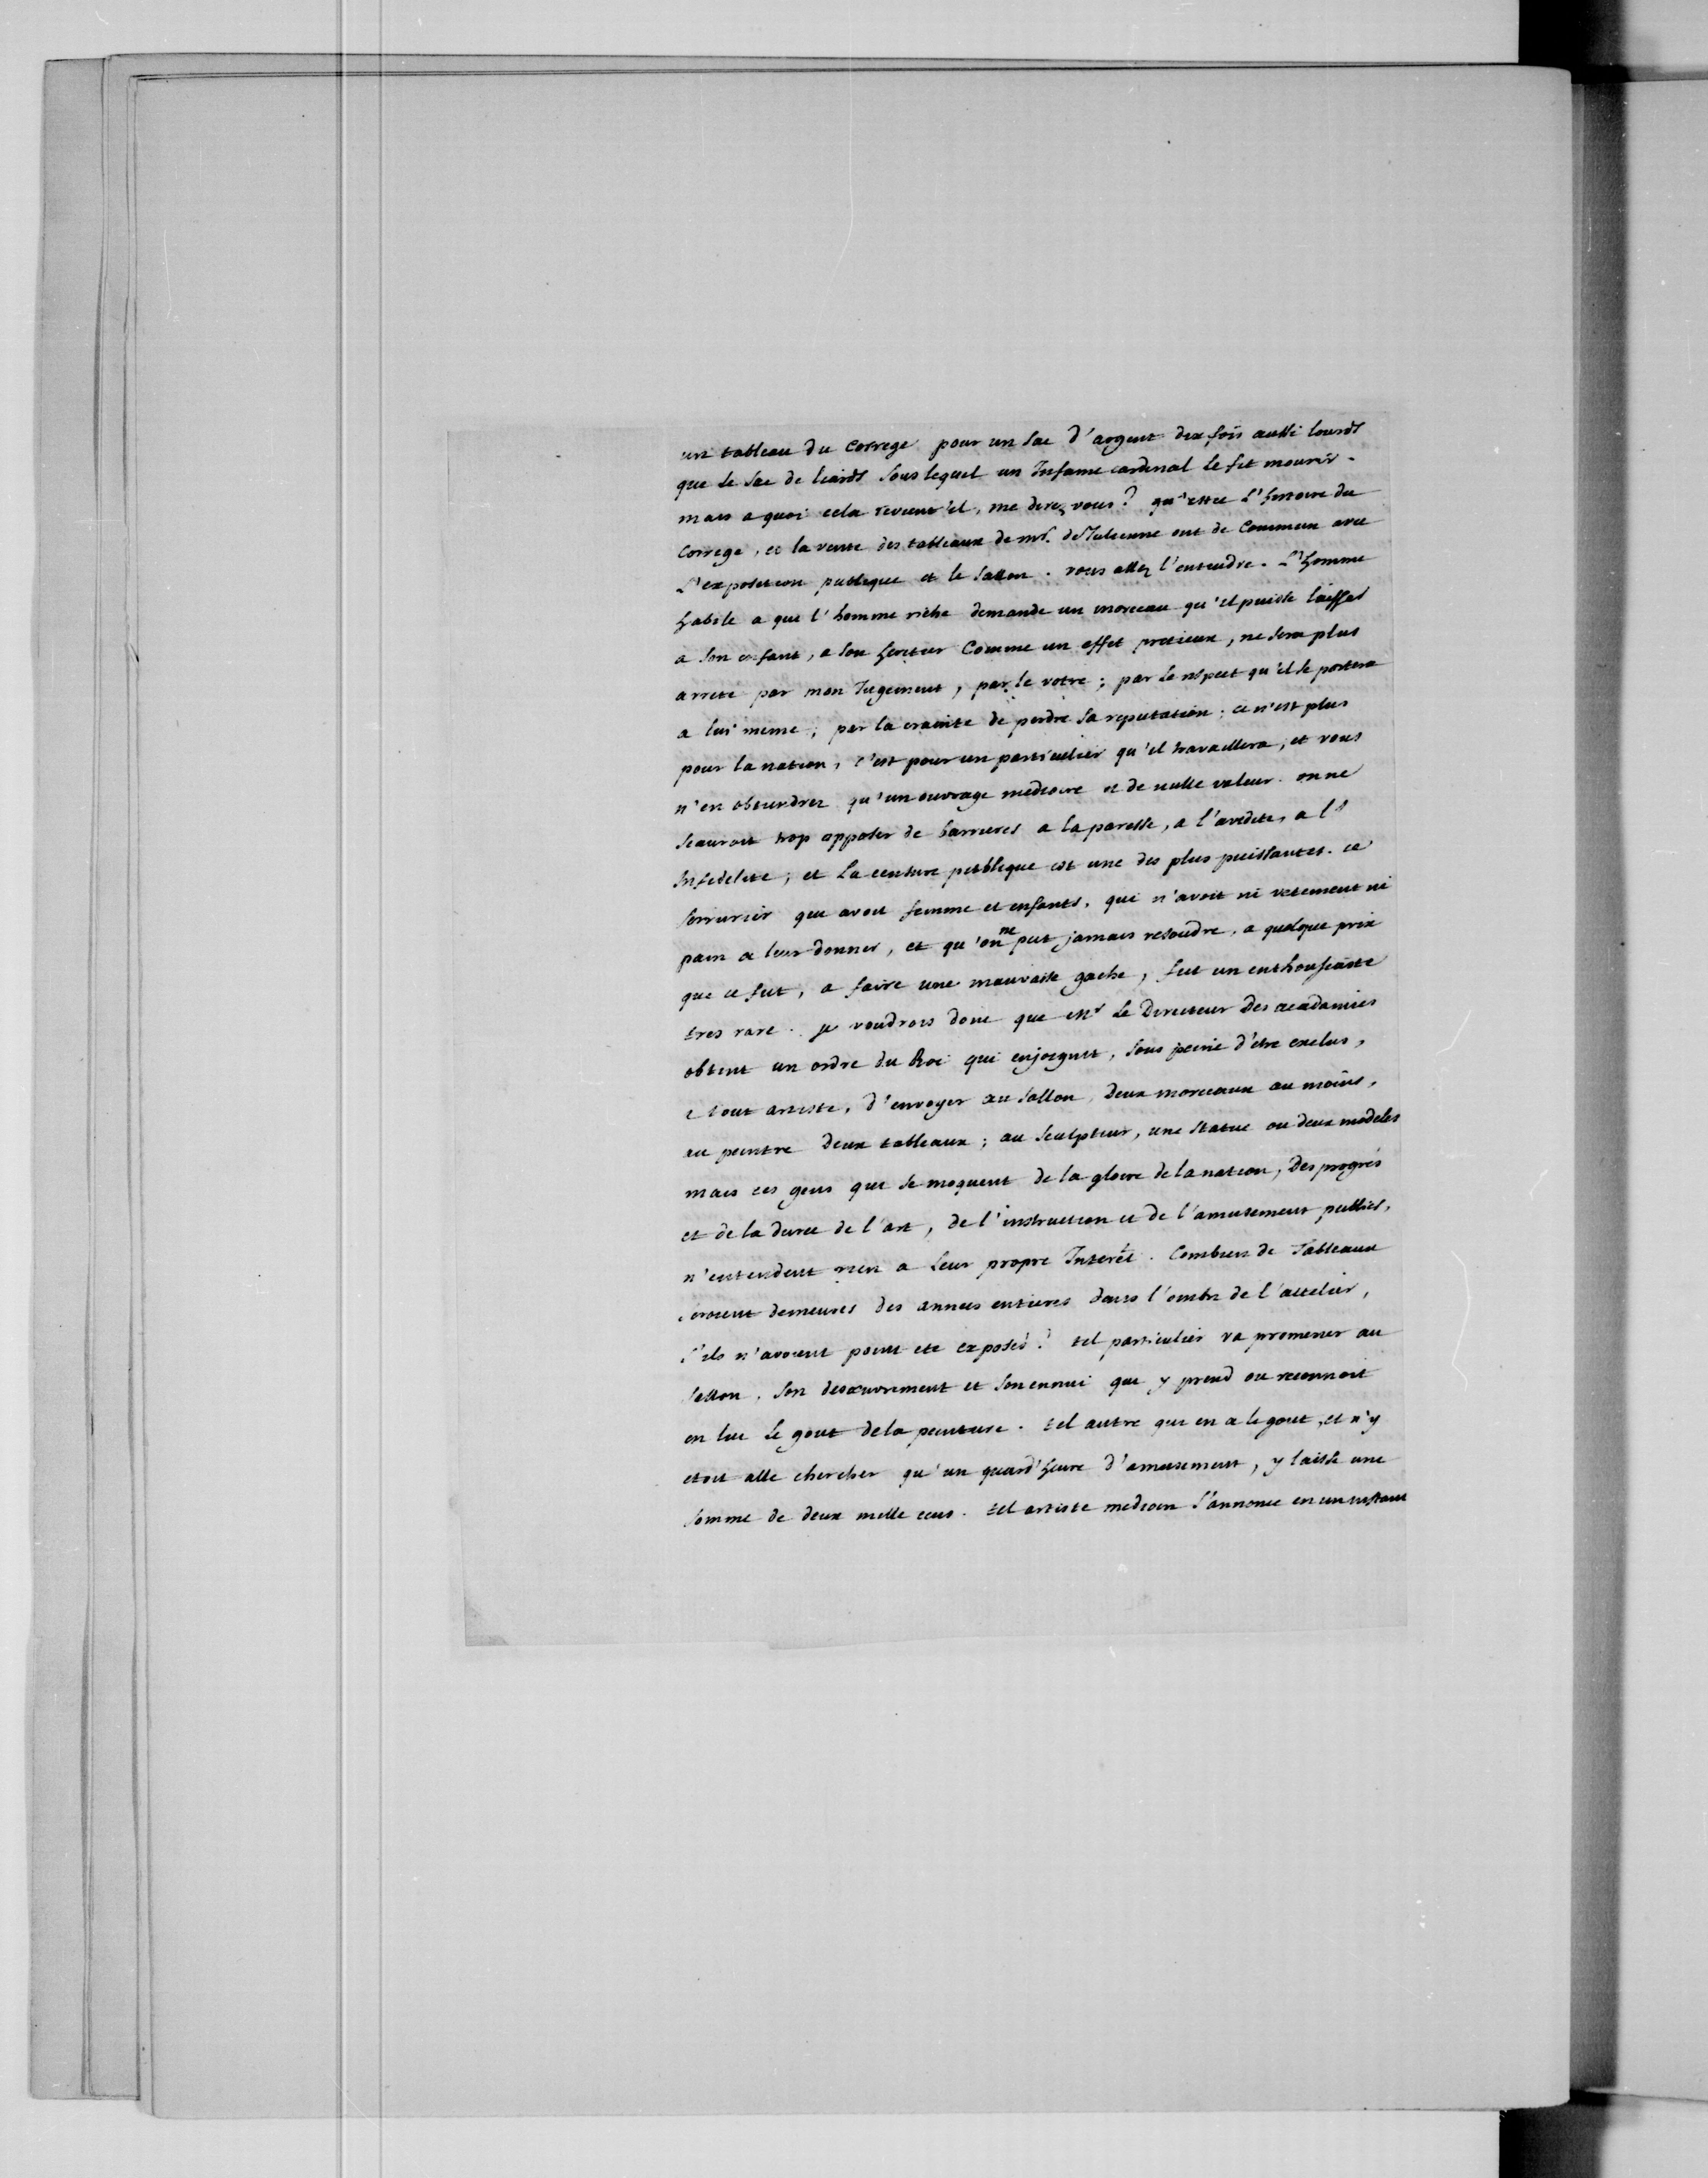 un tableau du Correge pour un sac d'argent dix fois aussi lourds
que le sac de liards sous lequel un Infame cardinal le fit mourir.
mais a quoi cela revient'il, me direz vous? qu'estce L'histoire du
Correge, et la vente des tableaux de mr. de Julienne ont de Commun avec
L'exposition publique et le sallon. vous allez l'entendre. L'homme
habile a qui l'homme riche demande un morceau qu'il puisse laisser
a son enfant, a son heritier Comme un effet pretieux, ne sera plus
arreté par mon Jugement, par le votre; par le respect qu'il se portera
a lui meme; par la crainte de perdre sa reputation; ce n'est plus
pour la nation, c'est pour un particulier qu'il travaillera, et vous
n'en obtiendrez qu'un ouvrage mediocre et de nulle valeur. on ne
scauroit trop opposer de barrieres a la paresse, a l'avidité, a l'
Infidelite; et La censure publique est une des plus puissantes. ce
serrurier qui avoit femme et enfants, qui n'avoit ni vetement ni
pain a leur donner, et qu'on ne put jamais resoudre, a quelque prix
que ce fut, a faire une mauvaise gache, fut un enthousiaste
tres rare. Je voudrois donc que Mr Le Directeur Des academies
obtint un ordre du Roi qui enjoignit, sous peine d'etre exclus,
a tout artiste, d'envoyer au sallon Deux morceaux au moins,
au peintre Deux tableaux; au sculpteur, une statue ou deux modeles
mais ces gens qui se moquent de la gloire de la nation, Des progrès
et de la duree de l'art, de l'instruction et de l'amusement publics,
n'entendent rien a Leur propre Interêt. Combien de Tableaux
seroient demeurés des annees entieres dans l'ombre de l'attelier,
s'ils n'avoient point eté exposés? tel particulier va promener au
sallon, son desœuvrement et son ennui qui y prend ou reconnoit
en lui le gout de la peinture. tel autre qui en a le gout, et n'y
etoit allé chercher qu'un quard'heure d'amusement, y laisse une
somme de deux mille ecus. tel artiste mediocre s'annonce en un instant